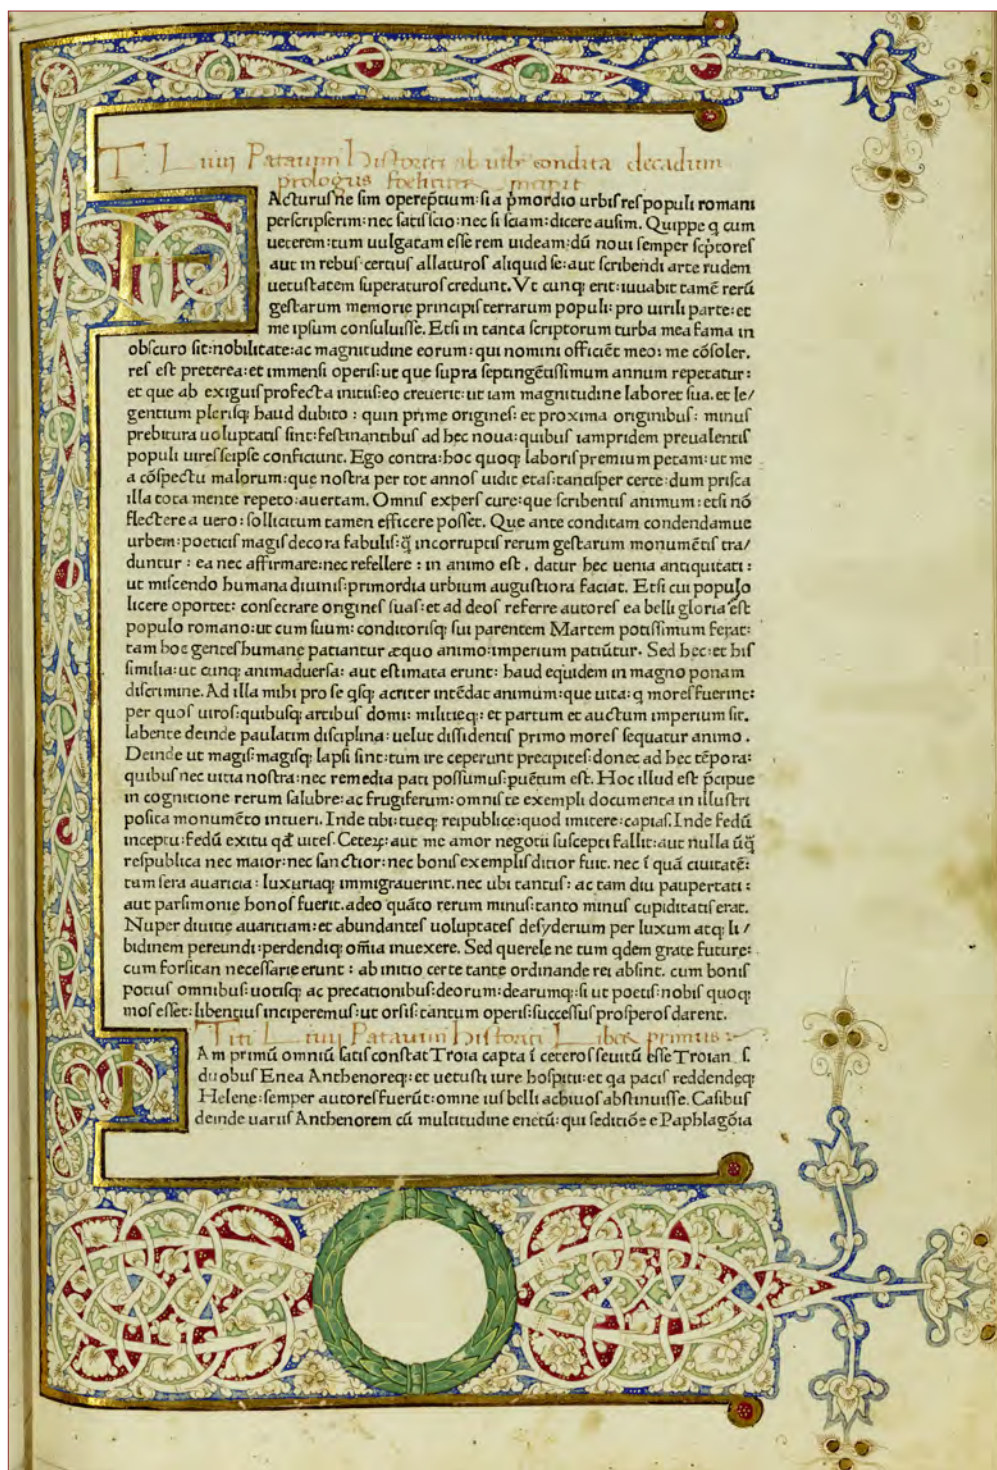 T. Liuij Patauini Historici ab urbe condita decadum
prologus foeliciter incipit
FActurus ne sim operep̄tium: si a p̄mordio urbis res populi romani
perscripserim: nec satis scio: nec si sciam: dicere ausim. Quippe q cum
ueterem: tum uulgatam esse rem uideam: dū noui semper sc̄ptores
aut in rebus certius allaturos aliquid se: aut scribendi arte rudem
uetustatem superaturos credunt. Vt cunq; erit: iuuabit tamē rerū
gestarum memorie principis terrarum populi: pro uirili parte: et
me ipsum consuluisse. Etsi in tanta scriptorum turba mea fama in
obscuro sit: nobilitate: ac magnitudine eorum: qui nomini officiēt meo: me cōsoler.
res est preterea: et immensi operis: ut que supra septingētissimum annum repetatur:
et que ab exiguis profecta initiis: eo creuerit: ut iam magnitudine laboret sua. et le/
gentium plerisq; haud dubito: quin prime origines: et proxima originibus: minus
prebitura uoluptatis sint: festinantibus ad hec noua: quibus iampridem preualentis
populi uires seipse conficiunt. Ego contra: hoc quoq; laboris premium petam: ut me
a cōspectu malorum: que nostra per tot annos uidit etas: tantisper certe: dum prisca
illa tota mente repeto: auertam. Omnis expers cure: que scribentis animum: etsi nō
flectere a uero: sollicitum tamen efficere posset. Que ante conditam condendamue
urbem: poeticis magis decora fabulis: q̄ incorruptis rerum gestarum monumētis tra/
duntur: ea nec affirmare: nec refellere: in animo est. datur hec uenia antiquitati:
ut miscendo humana diuinis: primordia urbium augustiora faciat. Etsi cui populo
licere oportet: consecrare origines suas: et ad deos referre autores ea belli gloria est
populo romano: ut cum suum: conditorisq; sui parentem Martem potissimum ferat:
tam hoc gentes humane patiantur æquo animo: imperium patiūtur. Sed hec: et his
similia: ut cunq; animaduersa: aut estimata erunt: haud equidem in magno ponam
discrimine. Ad illa mihi pro se q̄sq; acriter intēdat animum: que uita: q mores fuerint:
per quos uiros: quibusq; artibus domi: militieq;: et partum et auctum imperium sit.
labente deinde paulatim disciplina: uelut dissidentis primo mores sequatur animo.
Deinde ut magis: magisq; lapsi sint: tum ire ceperunt precipites: donec ad hec tēpora:
quibus nec uitia nostra: nec remedia pati possumus: puētum est. Hoc illud est p̄cipue
in cognitione rerum salubre: ac frugiferum: omnis te exempli documenta in illustri
posita monumēto intueri. Inde tibi: tueq; reipublice: quod imitere: capias. Inde fedū
inceptu: fedū exitu qđ uites. Ceteꝝ: aut me amor negotii suscepti fallit: aut nulla ūq̄
respublica nec maior: nec sanctior: nec bonis exemplis ditior fuit. nec ī quā ciuitatē:
tum sera auaricia: luxuriaq; immigrauerint. nec ubi tantus: ac tam diu paupertati:
aut parsimonie honos fuerit. adeo quāto rerum minus: tanto minus cupiditatis erat.
Nuper diuitie auaritiam: et abundantes uoluptates desyderium per luxum atq; li/
bidinem pereundi: perdendiq; om̄ia inuexere. Sed querele ne tum qdem grate future:
cum forsitan necessarie erunt: ab initio certe tante ordinande rei absint. cum bonis
potius omnibus: uotisq; ac precationibus: deorum: dearumq;: si ut poetis: nobis quoq;
mos esset: libentius inciperemus: ut orsis: tantum operis: successus prosperos darent.
Titi Liuij Patauini Historici Liber primus
IAm primū omniū satis constat Troia capta ī ceteros seuitū esse Troian s.
duobus Enea Anthenoreq;: et uetusti iure hospitii: et qa pacis reddendeq;
Helene: semper autores fuerūt: omne ius belli achiuos abstinuisse. Casibus
deinde uariis Anthenorem cū multitudine enetū: qui seditiōe e Paphlagōia